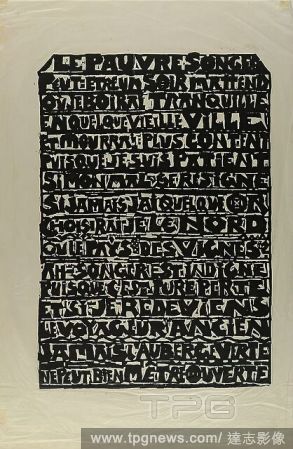 LE PAUVRE SONGE
PEUT ETRE UN SOIR M'ATTEND
OU JE BOIRAI TRANQUILLE
EN QUELQUE VIEILLE VILLE
ET MOURRAI PLUS CONTENT
PUISQUE JE SUIS PATIENT
SI MON MAL SE RESIGNE
SI JAMAIS J'AI QUELQUE OR
CHOISIRAI JE LE NORD
OU LE PAYS DES VIGNES
AH SONGER EST INDIGNE
PUISQUE C'EST PURE PERTE
ET SI JE REDEVIENS
LE VOYAGEUR ANCIEN
JAMAIS L'AUBERGE VERTE
NE PEUT BIEN M'ETRE OUVERTE
TPG
www.tpgnews.com / 達志影像